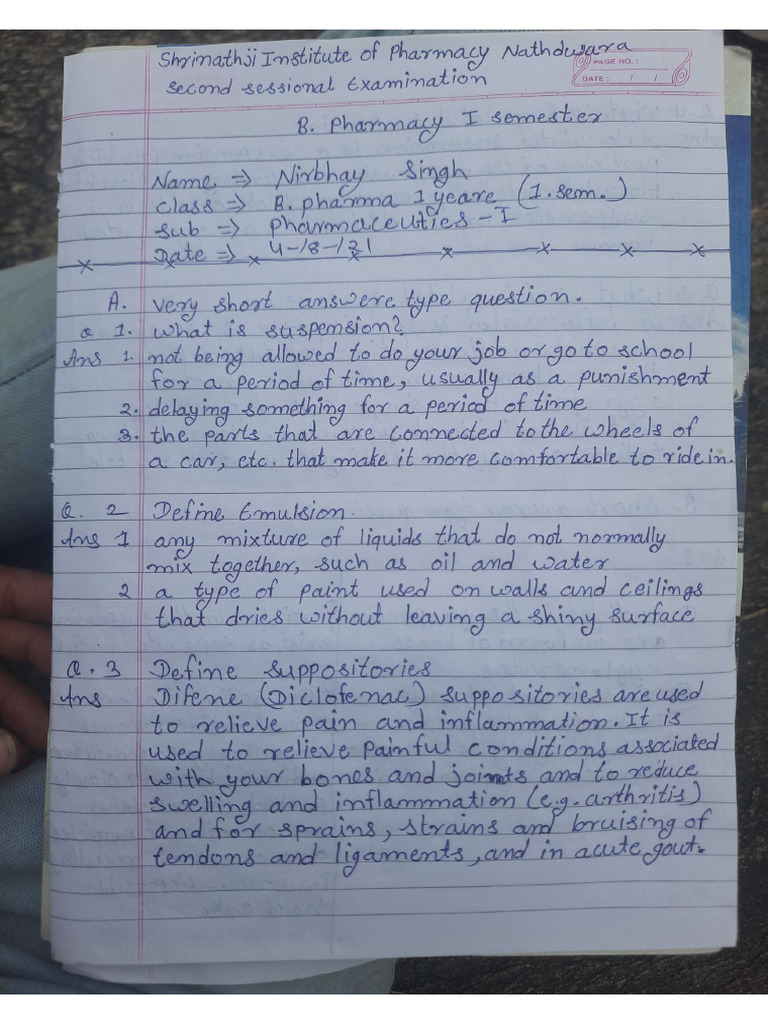 Shrinathji Institute of Pharmacy Nathdwara
PAGE NO. :
DATE : / /
Second sessional Examination
B. Pharmacy I semester
Name ⇒ Nirbhay Singh
Class ⇒ B. pharma I yeare (I. sem.)
Sub ⇒ Pharmaceuties - I
Date ⇒ 4-/8-/21
A. very short answere type question.
Q 1. what is suspension?
Ans 1. not being allowed to do your job or go to school
for a period of time, usually as a punishment
2. delaying something for a period of time
3. the parts that are connected to the wheels of
a car, etc. that make it more comfortable to ride in.
Q. 2 Define Emulsion.
Ans 1 any mixture of liquids that do not normally
mix together, such as oil and water
2 a type of paint used on walls and ceilings
that dries without leaving a shiny surface
Q. 3 Define suppositories
Ans Difene (Diclofenac) suppositories are used
to relieve pain and inflammation. It is
used to relieve painful conditions associated
with your bones and joints and to reduce
swelling and inflammation (e.g. arthritis)
and for sprains, strains and bruising of
tendons and ligaments, and in acute gout.